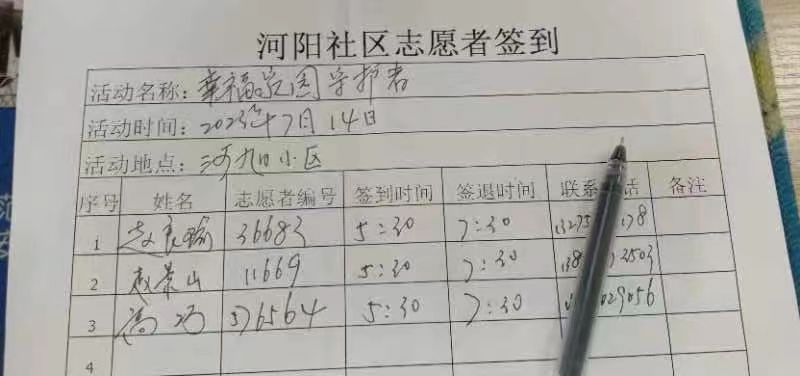 河阳社区志愿者签到
活动名称: 幸福家园守护者
活动时间: 2023年7月14日
活动地点: 河阳小区
序号 姓名 志愿者编号 签到时间 签退时间 联系 话 备注
1 赵良瑜 36683 5:30 7:30
2 赵景山 11669 5:30 7:30 3503
3 冯巧 576564 5:30 7:30 029056
4